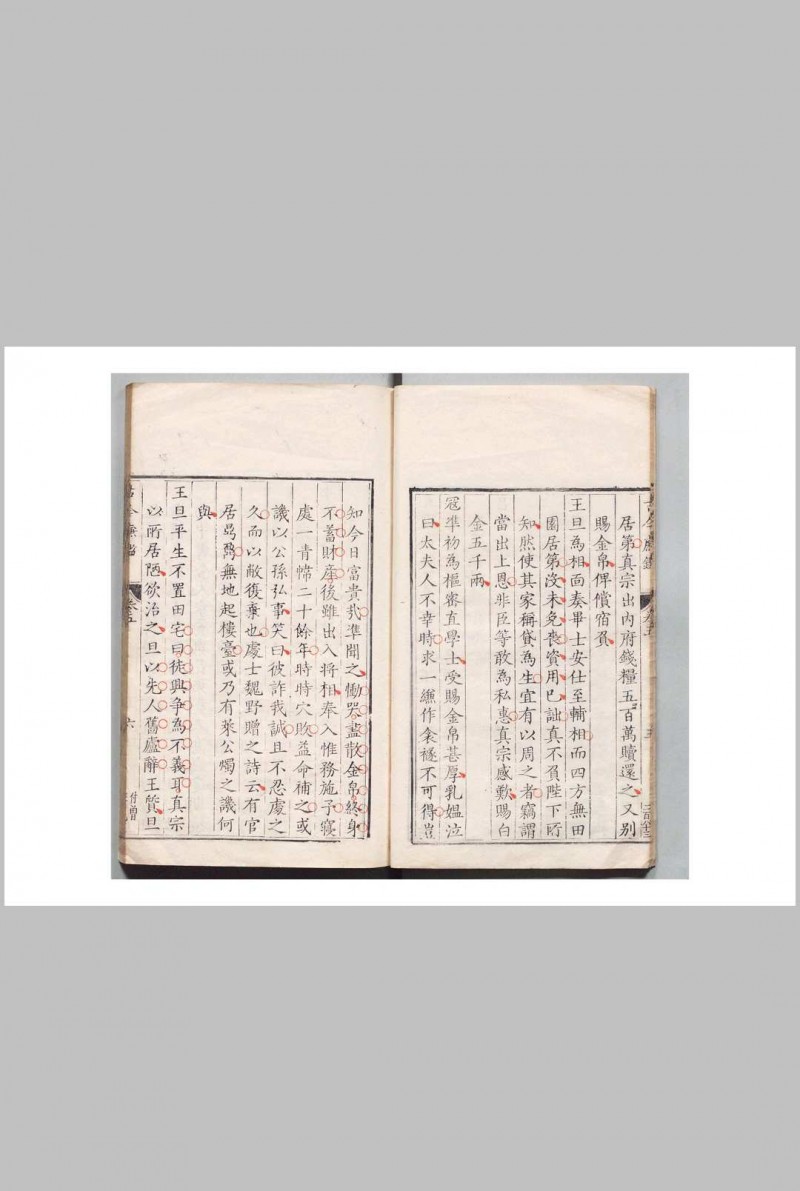 居第真宗出內府錢糧五百萬贖還之又別
賜金帛俾償宿負
王旦為相面奏畢士安仕至輔相而四方無田
園居第沒未免喪資用已詘真不負陛下所
知然使其家稱貸為生宜有以周之者竊謂
當出上恩非臣等敢為私惠真宗感歎賜白
金五千兩
寇準初為樞密直學士受賜金帛甚厚乳媼泣
曰太夫人不幸時求一縑作衾襚不可得豈
知今日富貴哉準聞之慟哭盡散金帛終身
不蓄財產後雖出入將相奉入惟務施予寢
處一青幃二十餘年時時穴敗益命補之或
譏以公孫弘事笑曰彼詐我誠且不忍處之
久而以敝復棄也處士魏野贈之詩云有官
居鼎鼐無地起樓臺或乃有萊公燭之譏何
與
王旦平生不置田宅曰徒興爭為不義耳真宗
以所居陋欲治之旦以先人舊廬辭王質旦
古今廉鑑
卷五
六